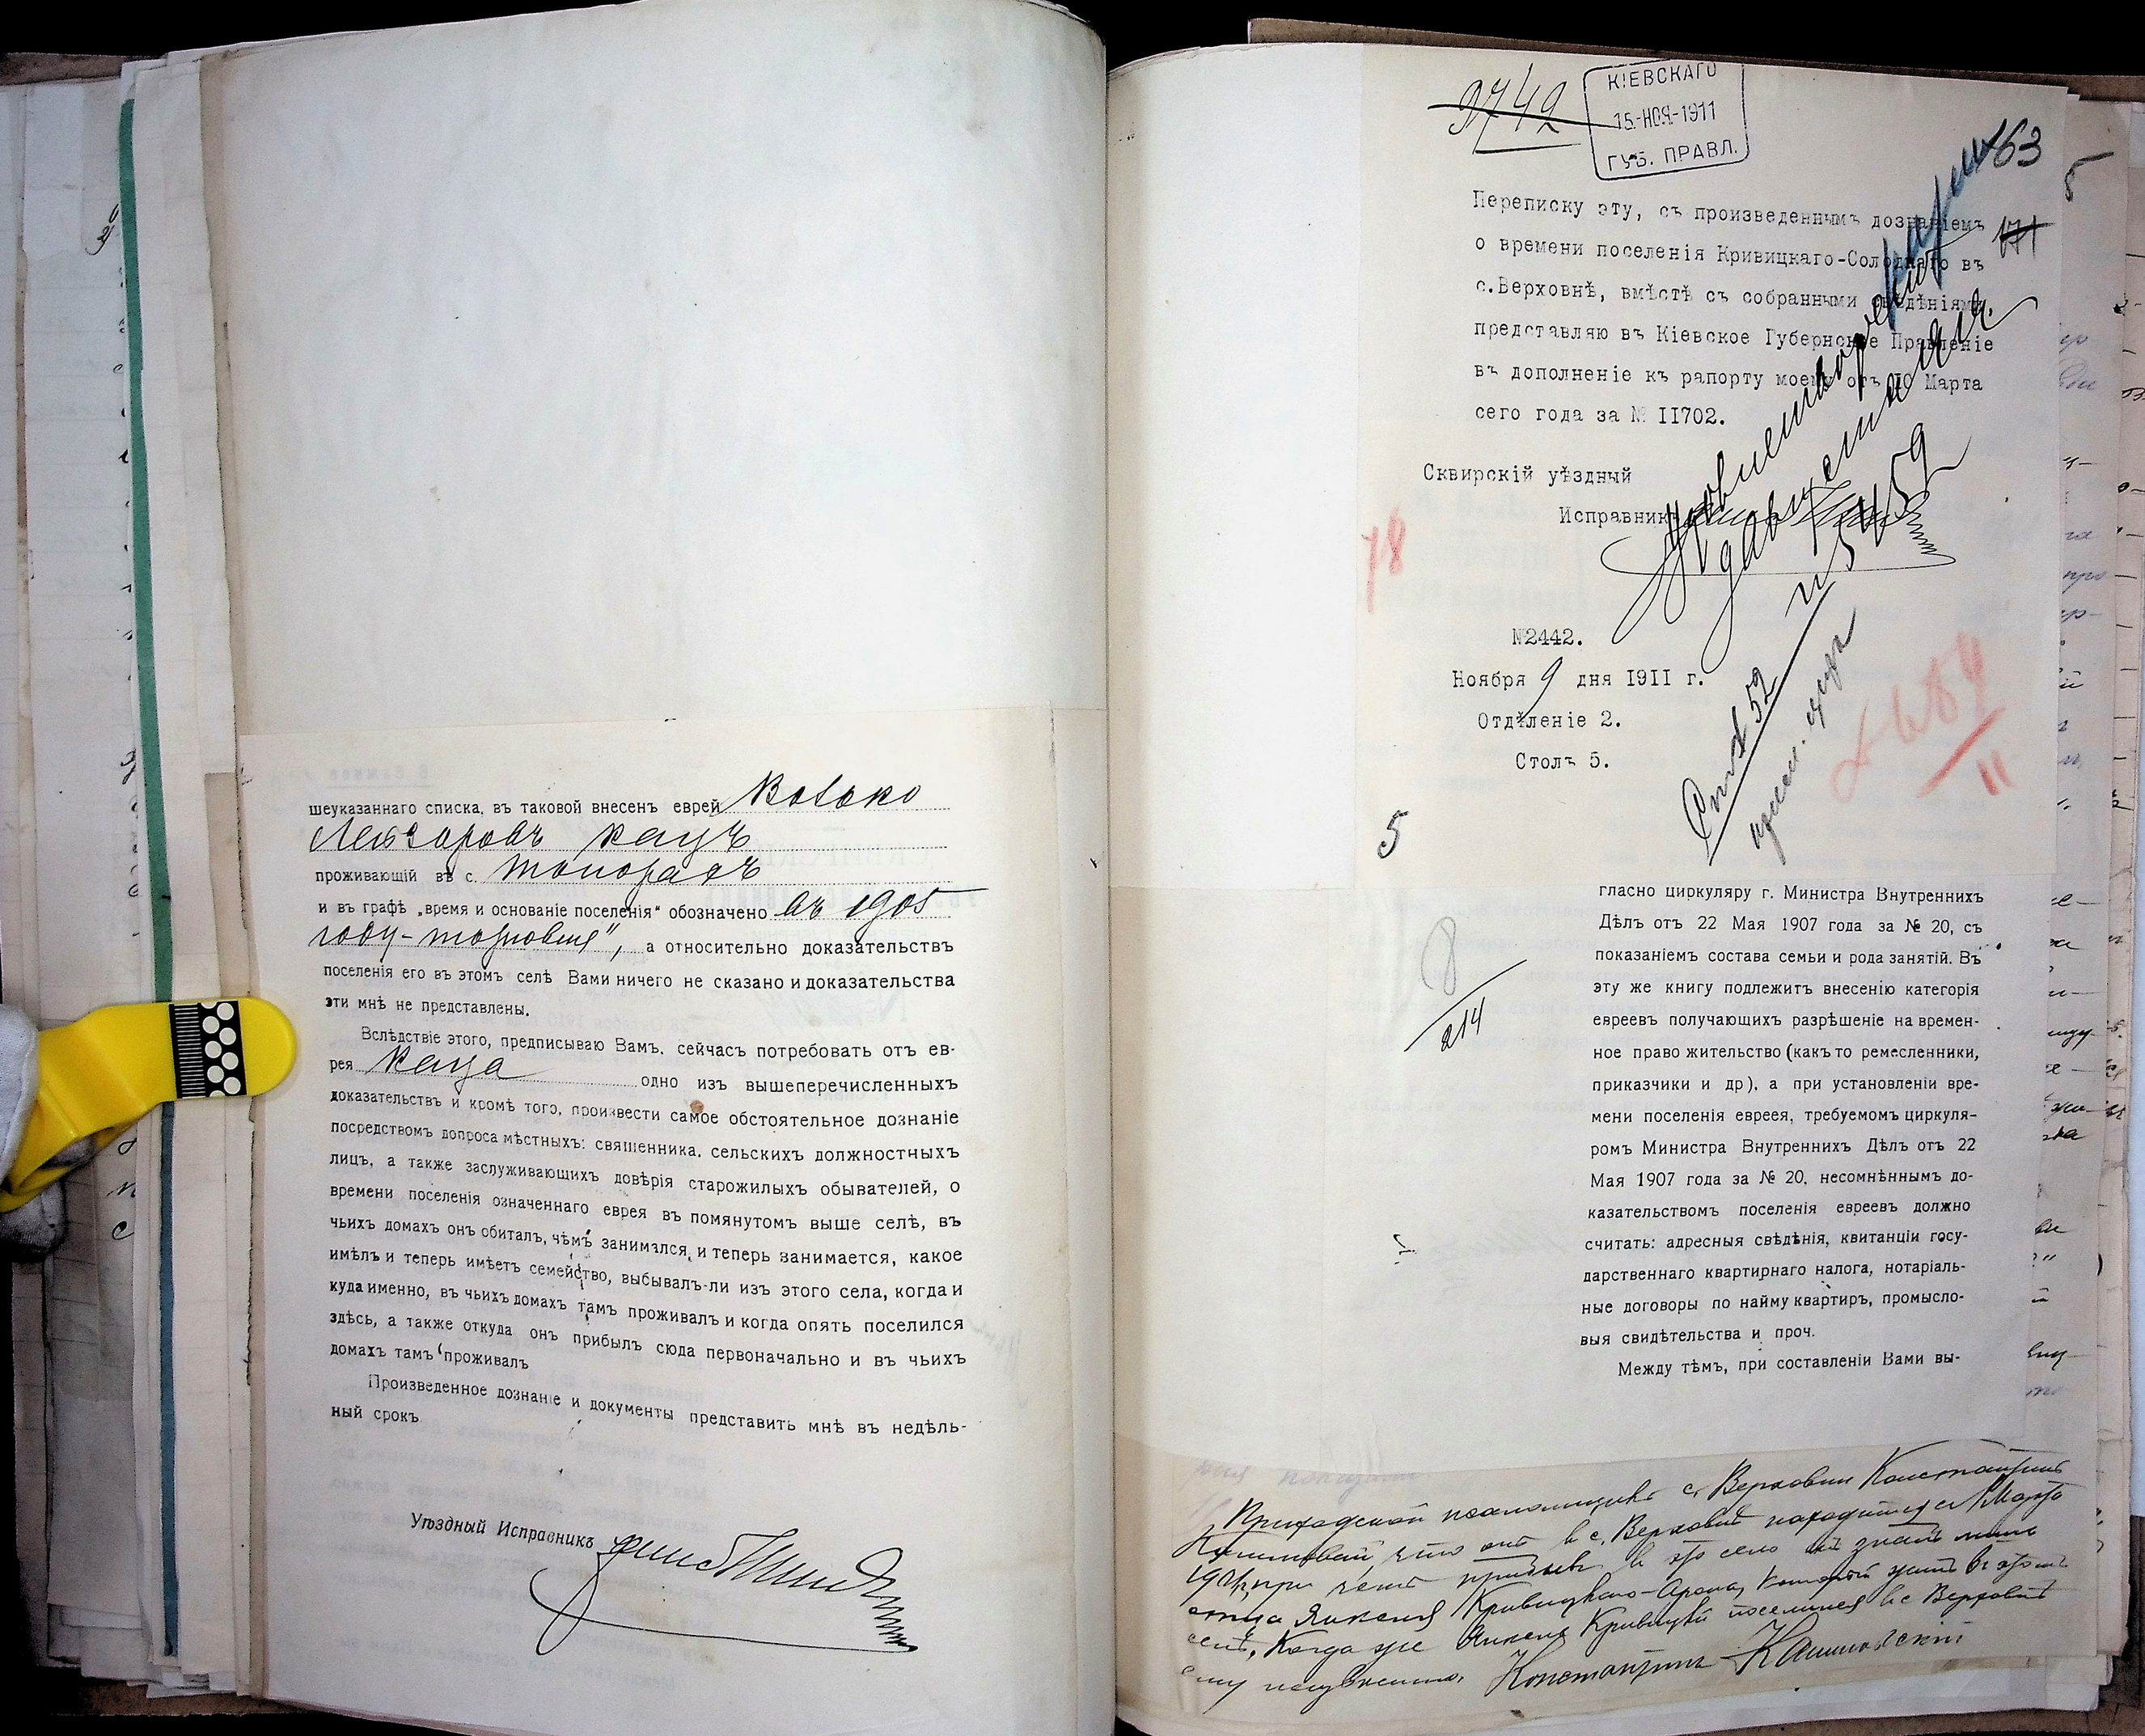 шеуказаннаго списка, въ таковой внесенъ еврей
Лейзоровъ Кацъ
проживающій въ с. Топорахъ
и въ графѣ „время и основаніе поселенія“ обозначено въ 1905
году - торговля", а относительно доказательствъ
поселенія его въ этомъ селѣ Вами ничего не сказано и доказательства
эти мнѣ не представлены.
Вслѣдствіе этого, предписываю Вамъ, сейчасъ потребовать отъ ев-
рея Каца одно изъ вышеперечисленныхъ
доказательствъ и кромѣ того, произвести самое обстоятельное дознаніе
посредствомъ допроса мѣстныхъ: священника, сельскихъ должностныхъ
лицъ, а также заслуживающихъ довѣрія старожилыхъ обывателей, о
времени поселенія означеннаго еврея въ помянутомъ выше селѣ, въ
чьихъ домахъ онъ обиталъ, чѣмъ занимался, и теперь занимается, какое
имѣлъ и теперь имѣетъ семейство, выбывалъ-ли изъ этого села, когда и
куда именно, въ чьихъ домахъ тамъ проживалъ и когда опять поселился
здѣсь, а также откуда онъ прибылъ сюда первоначально и въ чьихъ
домахъ тамъ проживалъ
Произведенное дознаніе и документы представить мнѣ въ недѣль-
ный срокъ
Уѣздный Исправникъ
3742
КІЕВСКАГО
15-НОЯ-1911
ГУБ. ПРАВЛ.
163
171
Переписку эту, съ произведеннымъ дознаніемъ
о времени поселенія Кривицкаго-Солоднаго въ
с.Верховнѣ, вмѣстѣ съ собранными свѣдѣніями
представляю въ Кіевское Губернское Правленіе
въ дополненіе къ рапорту моему отъ 10 Марта
сего года за № II702.
Сквирскій уѣздный
Исправникъ
78
№2442.
Ноября 9 дня 1911 г.
Отдѣленіе 2.
Столъ 5.
5
8
214
гласно циркуляру г. Министра Внутреннихъ
Дѣлъ отъ 22 Мая 1907 года за № 20, съ
показаніемъ состава семьи и рода занятій. Въ
эту же книгу подлежитъ внесенію категорія
евреевъ получающихъ разрѣшеніе на времен-
ное право жительство (какъ то ремесленники,
приказчики и др), а при установленіи вре-
мени поселенія евреея, требуемомъ циркуля-
ромъ Министра Внутреннихъ Дѣлъ отъ 22
Мая 1907 года за № 20, несомнѣннымъ до-
казательствомъ поселенія евреевъ должно
считать: адресныя свѣдѣнія, квитанціи госу-
дарственнаго квартирнаго налога, нотаріаль-
ные договоры по найму квартиръ, промысло-
выя свидѣтельства и проч.
Между тѣмъ, при составленіи Вами вы-
Приходской псаломщикъ с. Верховни Константинъ
что онъ въ с. Верховнѣ находится съ Марта
при чемъ прибывъ въ это село онъ зналъ лишь
отца Янкеля Кривицкаго-Арона, который жилъ въ этомъ
селѣ, Когда же Янкель Кривицкій поселился въ с Верховнѣ
ему неизвестно. Константинъ